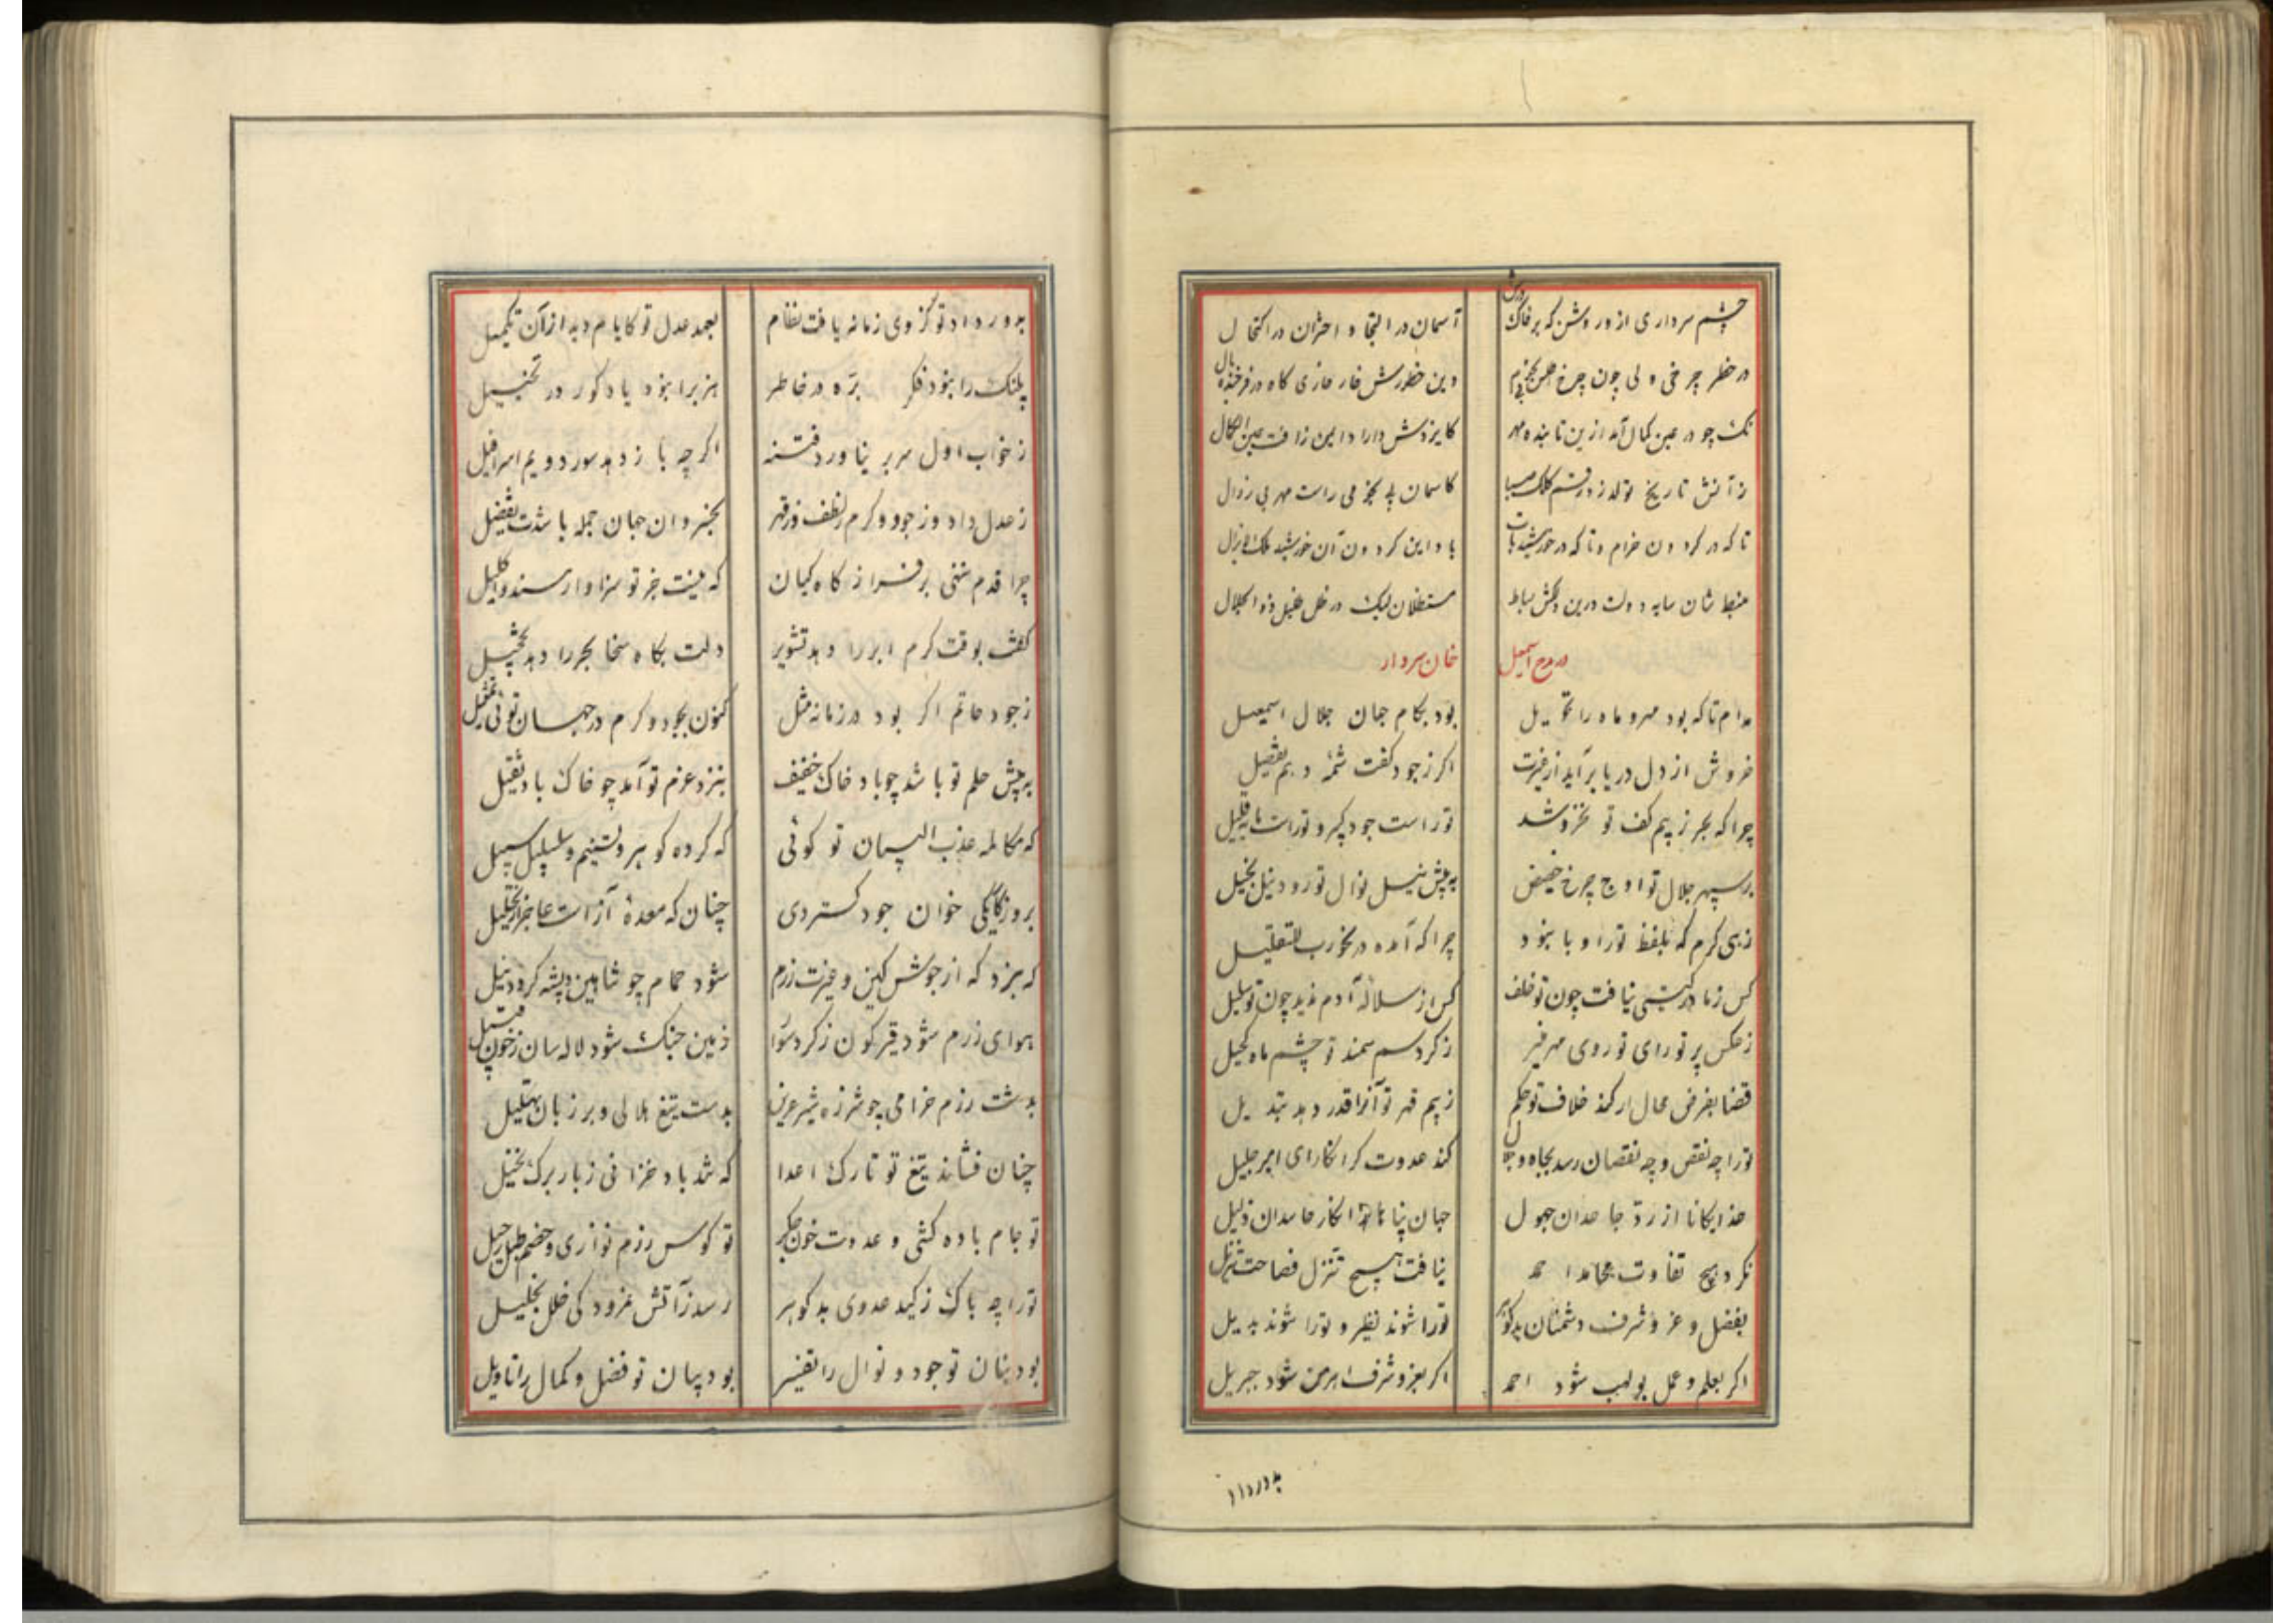 چشم سرداری از درویش که بر خاک درش
آسمان در التجا و اختران در اکتحال
در خطر چرخی ولی چون چرخ
وین خطورش فار غازی کاه در فرخنده بال
نک چو در عین کمال آمد ازین تابنده مهر
کایزدش دارا در این زافت عین الکمال
ز آتش تاریخ تولد زد رقم کلک صبا
کاسمان راست مهر بی زوال
تا که در کردون خرام و تا که در خورشید تاب
باد این کردون آن خورشید ملک لایزال
منبطشان سایه دولت درین دلکش بساط
مستظلان لیک در ظل ظلیل ذوالجلال
در مدح اسمعیل
خان سردار
مدام تا که بود مهر و ماه را تحویل
بود بکام جهان جلال اسمعیل
خروش از دل دریا برآید از غیرت
اکر ز جود کفت شمه دهم تفضیل
چرا که بحر ز بیم کف تو نخروشد
تو راست جود کثیر و توراست مایه قلیل
بر سپهر جلال تو اوج چرخ حضیض
به پیش نیل نوال تو رود نیل بخیل
زهی کرم که بلفظ تو را و با نبود
چرا که آمده در نحو رب للتقلیل
کس ز مادر کیتی نیافت چون تو خلف
کس از سلاله آدم ندید چون تو سلیل
ز عکس پرتو رای تو روی مهر منیر
ز کرد سم سمند تو چشم ماه کحیل
قضا بفرض محال ار کند خلاف تو حکم
ز بیم قهر تو آنرا قدر دهد تبدیل
تو را چه نقص و چه نقصان رسد بجاه و جلال
کند عدوت کر انکار ای امیر جلیل
خدایکانا از رد جاحدان جهول
جهان پناها از انکار حاسدان ذلیل
نکرد هیچ تفاوت محامد احمد
نیافت هیچ تنزل فصاحت تنزیل
بفضل و عز و شرف دشمنان بدکوهر
تو را شوند نظیر و تو را شوند بدیل
اکر بعلم و عمل بولهب شود احمد
اکر بعز و شرف اهرمن شود جبریل
بدور داد
بدور داد تو کز وی زمانه یافت نظام
بعهد عدل تو کایام دید از آن تکمیل
پلنک را نبود فکر بره در خاطر
هزبر را نبود یاد کور در تخییل
ز خواب اول سر بر نیاورد فتنه
اکر چه باز دمد صور دویم اسرافیل
ز عدل و داد و ز جود و کرم ز لطف و ز قهر
بخسروان جهان جمله باشدت تفضیل
چرا قدم ننهی بر فراز کاه کیان
که نیست جز تو سزاوار مسند و اکلیل
کفت بوقت کرم ابر را دهد تشویر
دلت بکاه سخا بحر را دهد تخجیل
ز جود حاتم اکر بود در زمانه مثل
کنون بجود و کرم در جهان توئی تمثیل
به پیش حلم تو باشد چو باد خاک خفیف
بنزد عزم تو آمد چو خاک باد ثقیل
که مکالمه عذب البیان تو کوئی
که کرده کوهر و تسنیم و سلسبیل سبیل
بروزکایکی خوان جود کستردی
چنان که معده آز است عاجز از تحلیل
که نبرد که از جوش کین و غیرت رزم
شود حمام چو شاهین و پشه کردد نیل
هوای رزم شود قیرکون ز کرد سوار
زمین جنک شود لاله سان ز خون قتیل
بدشت رزم خرامی چو شرزه شیر عرین
بدست تیغ هلالی و بر زبان تهلیل
چنان فشاند تیغ تو تارک اعدا
که شد باد خزانی ز بار برک نخیل
تو جام باده کشی و عدوت خون جکر
تو کوس رزم نوازی و خصم طبل رحیل
تو را چه باک ز کید عدوی بدکوهر
رسد ز آتش نمرود کی خلل بخلیل
بود بنان تو جود و نوال را تفسیر
بود بیان تو فضل و کمال را تاویل